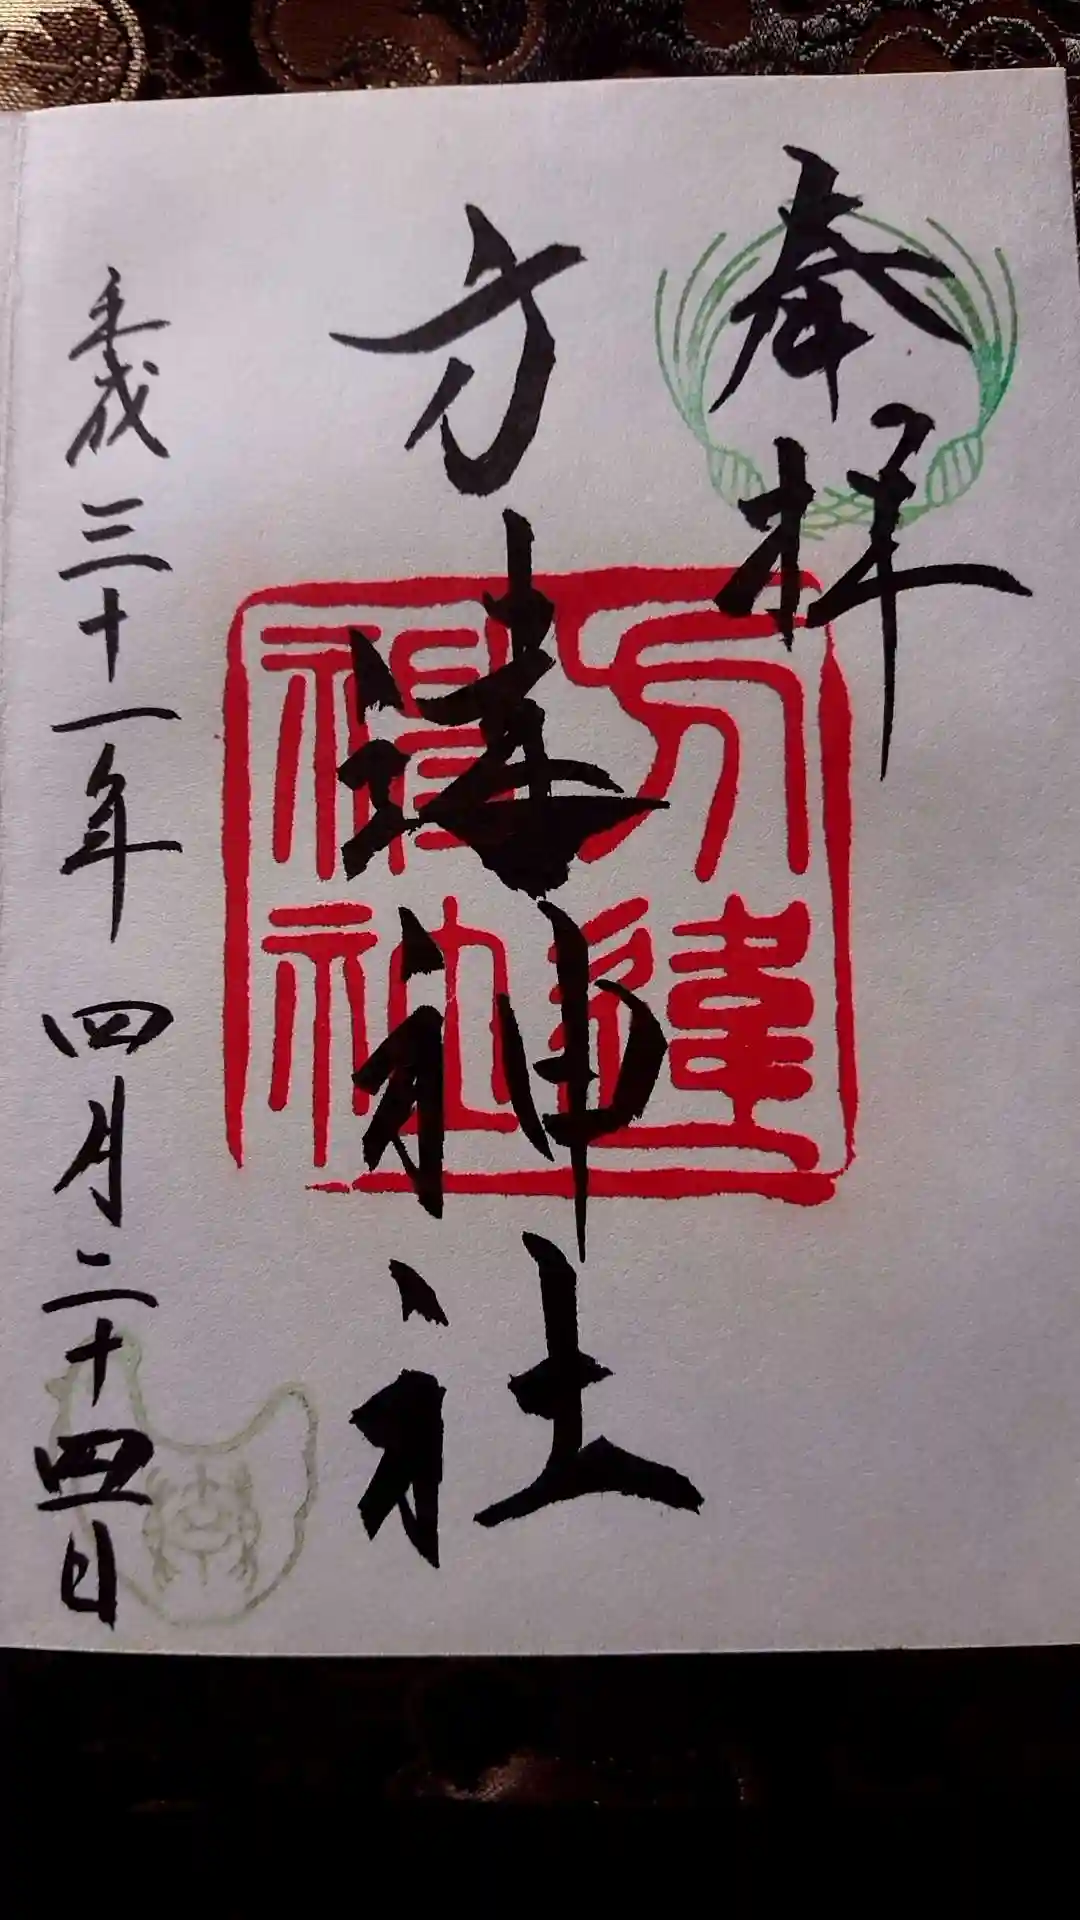 奉拝
方違神社
方違神社
平成三十一年四月二十四日